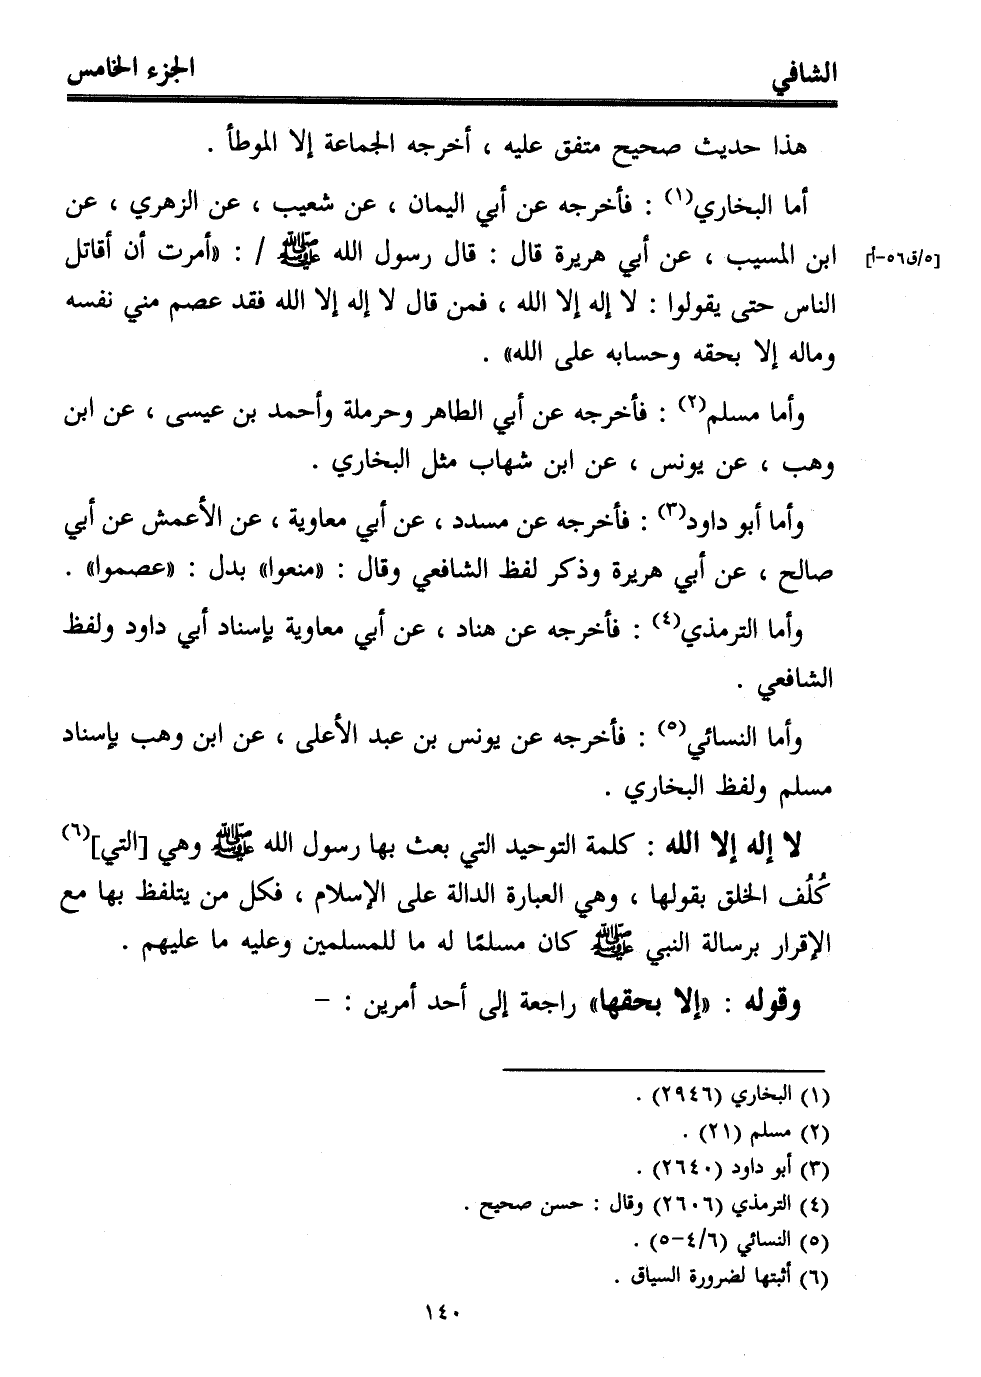 الشافي
الجزء الخامس
هذا حديث صحيح متفق عليه ، أخرجه الجماعة إلا الموطأ .
أما البخاري(١) : فأخرجه عن أبي اليمان ، عن شعيب ، عن الزهري ، عن
ابن المسيب ، عن أبي هريرة قال : قال رسول الله ﷺ / : «أمرت أن أقاتل
[٥/ق٥٦-أ]
الناس حتى يقولوا : لا إله إلا الله ، فمن قال لا إله إلا الله فقد عصم مني نفسه
وماله إلا بحقه وحسابه على الله» .
وأما مسلم(٢) : فأخرجه عن أبي الطاهر وحرملة وأحمد بن عيسى ، عن ابن
وهب ، عن يونس ، عن ابن شهاب مثل البخاري .
وأما أبو داود(٣) : فأخرجه عن مسدد ، عن أبي معاوية ، عن الأعمش عن أبي
صالح ، عن أبي هريرة وذكر لفظ الشافعي وقال : «منعوا» بدل : «عصموا» .
وأما الترمذي(٤) : فأخرجه عن هناد ، عن أبي معاوية بإسناد أبي داود ولفظ
الشافعي .
وأما النسائي(٥) : فأخرجه عن يونس بن عبد الأعلى ، عن ابن وهب بإسناد
مسلم ولفظ البخاري .
لا إله إلا الله : كلمة التوحيد التي بعث بها رسول الله ﷺ وهي [التي](٦)
كُلُف الخلق بقولها ، وهي العبارة الدالة على الإسلام ، فكل من يتلفظ بها مع
الإقرار برسالة النبي ﷺ كان مسلمًا له ما للمسلمين وعليه ما عليهم .
وقوله : «إلا بحقها» راجعة إلى أحد أمرين : –
(١) البخاري (٢٩٤٦) .
(٢) مسلم (٢١) .
(٣) أبو داود (٢٦٤٠) .
(٤) الترمذي (٢٦٠٦) وقال : حسن صحيح .
(٥) النسائي (٦/٤-٥) .
(٦) أثبتها لضرورة السياق .
١٤٠